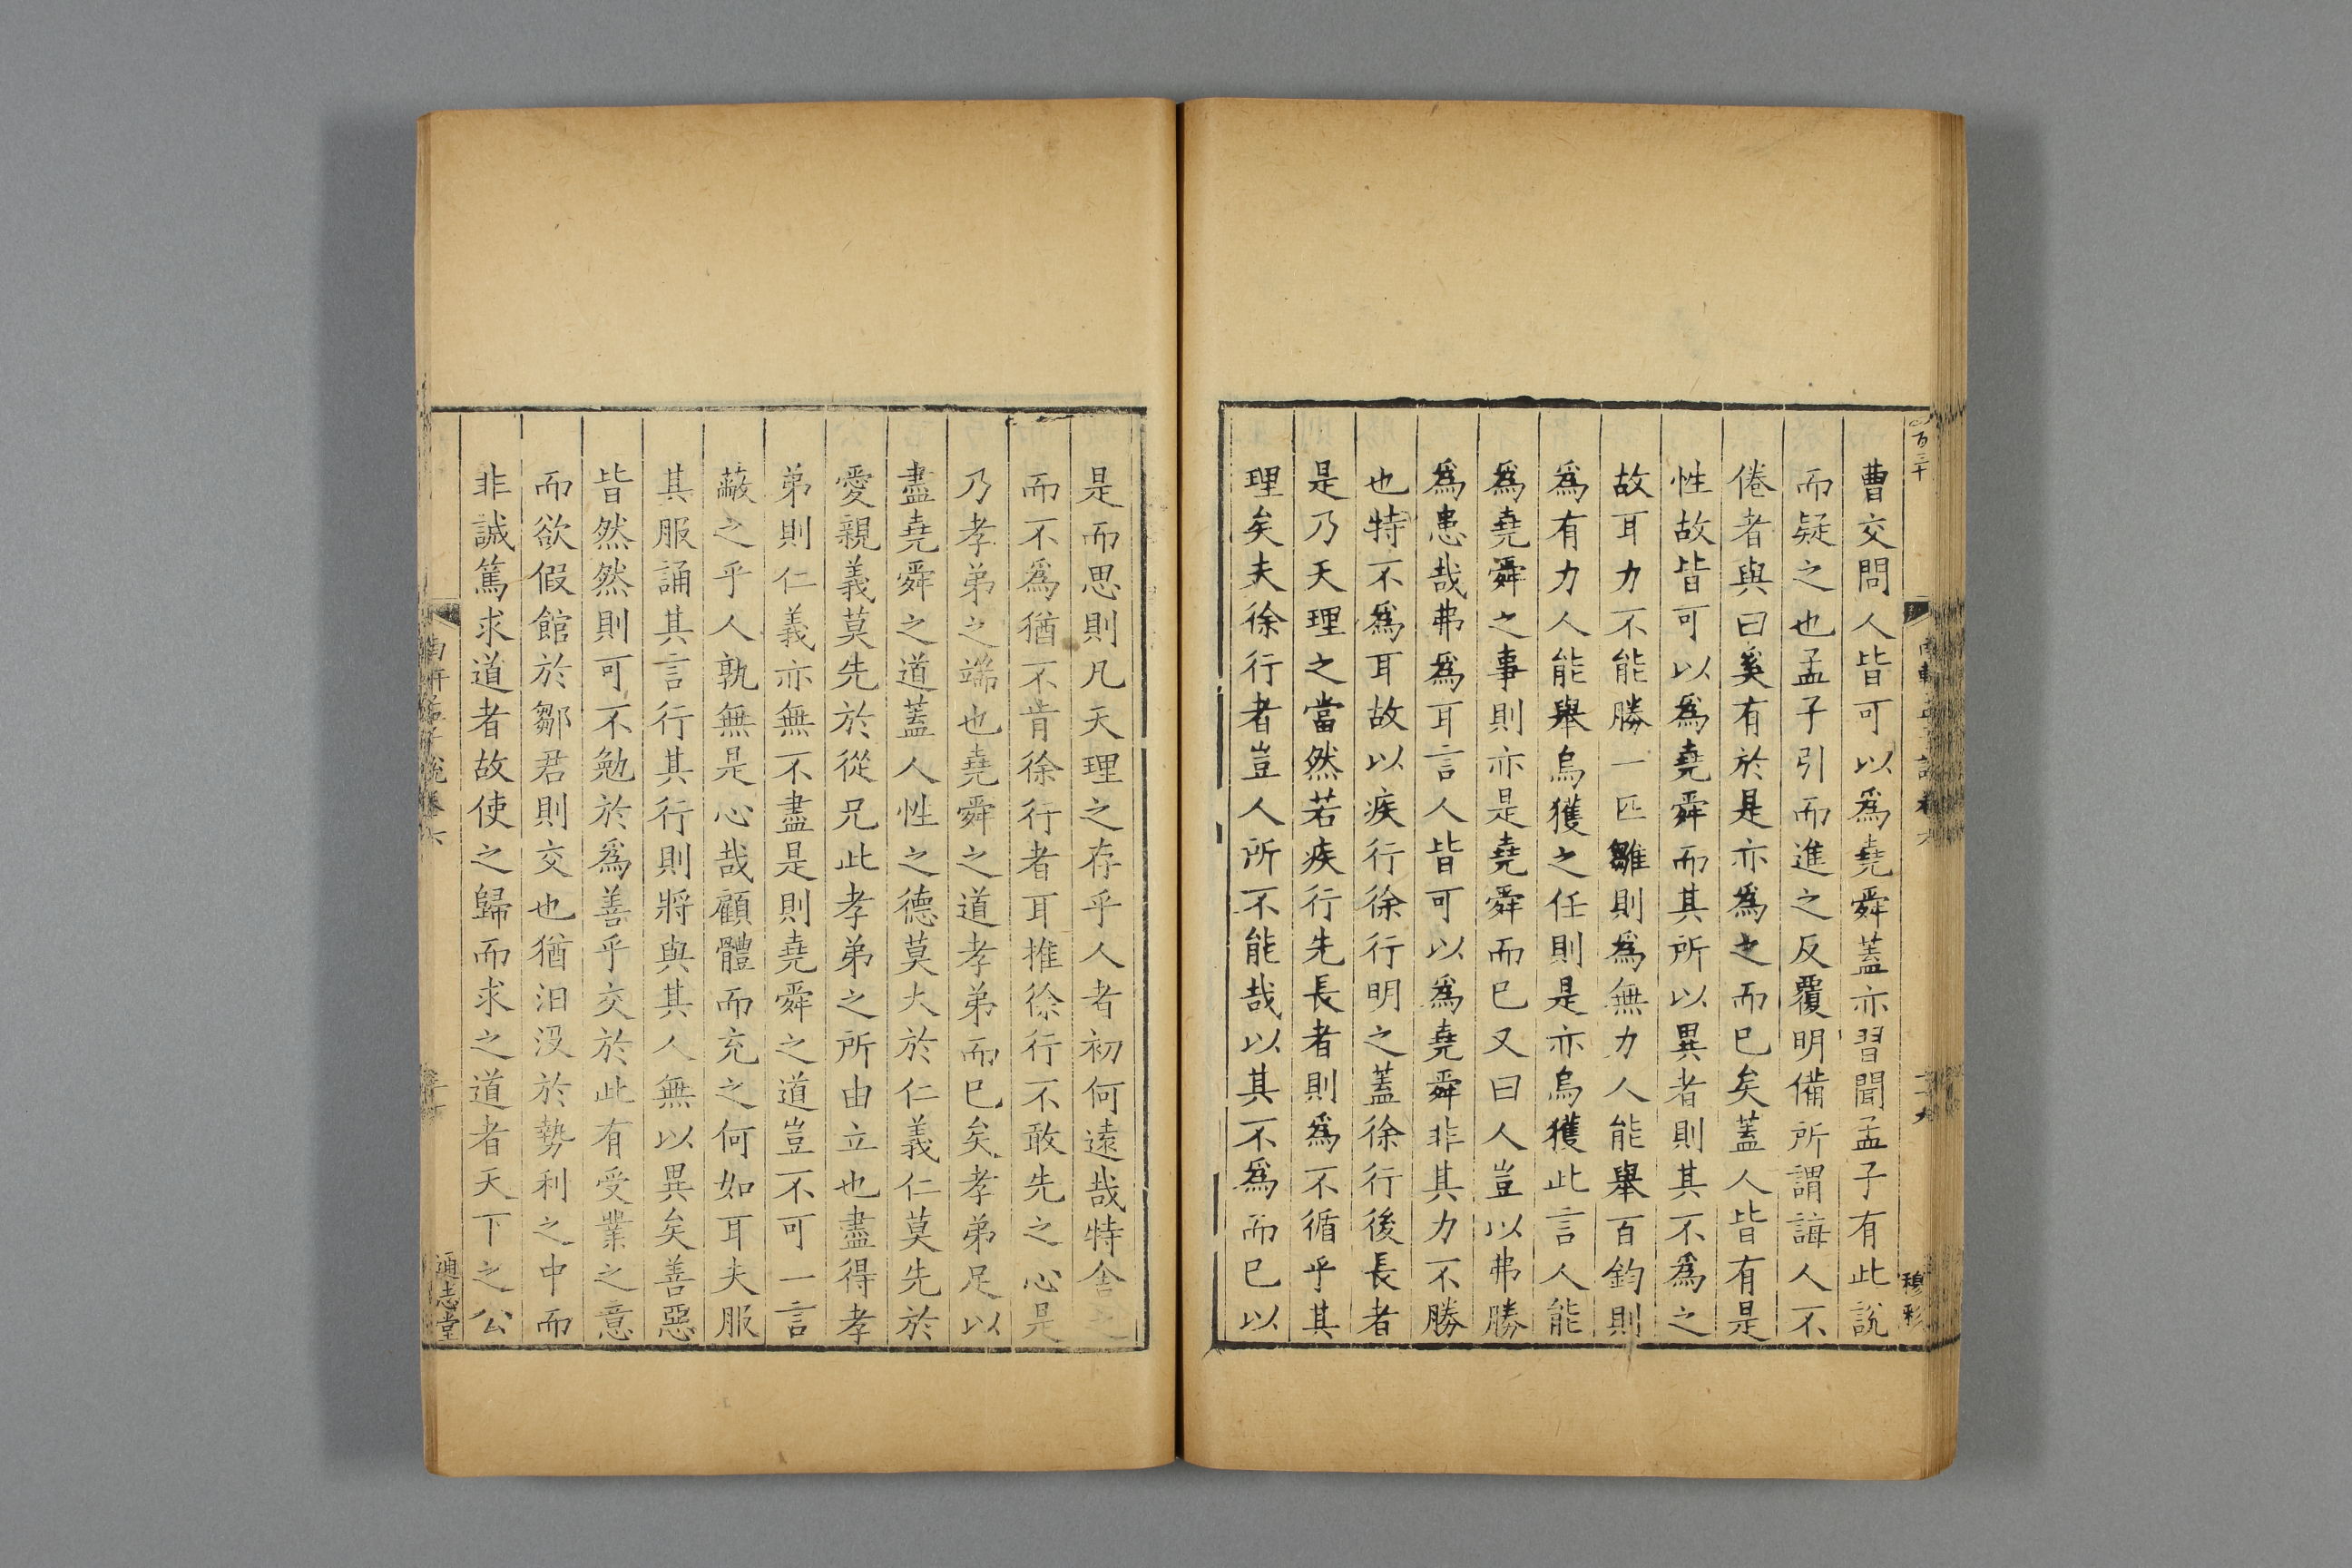 曹交問人皆可以爲堯舜蓋亦習聞孟子有此説
而疑之也孟子引而進之反覆明備所謂誨人不
倦者與曰奚有於是亦爲之而已矣蓋人皆有是
性故皆可以爲堯舜而其所以異者則其不爲之
故耳力不能勝一匹雛則爲無力人能舉百鈞則
爲有力人能舉烏獲之任則是亦烏獲此言人能
爲堯舜之事則亦是堯舜而已又曰人豈以弗勝
爲患哉弗爲耳言人皆可以爲堯舜非其力不勝
也特不爲耳故以疾行徐行明之蓋徐行後長者
是乃天理之當然若疾行先長者則爲不循乎其
理矣夫徐行者豈人所不能哉以其不爲而已以
是而思則凡天理之存乎人者初何遠哉特舍之
而不爲猶不肯徐行者耳推徐行不敢先之心是
乃孝弟之端也堯舜之道孝弟而已矣孝弟足以
盡堯舜之道蓋人性之德莫大於仁義仁莫先於
愛親義莫先於從兄此孝弟之所由立也盡得孝
弟則仁義亦無不盡是則堯舜之道豈不可一言
蔽之乎人孰無是心哉顧體而充之何如耳夫服
其服誦其言行其行則將與其人無以異矣善惡
皆然然則可不勉於爲善乎交於此有受業之意
而欲假館於鄒君則交也猶汨没於勢利之中而
非誠篤求道者故使之歸而求之道者天下之公
通志堂